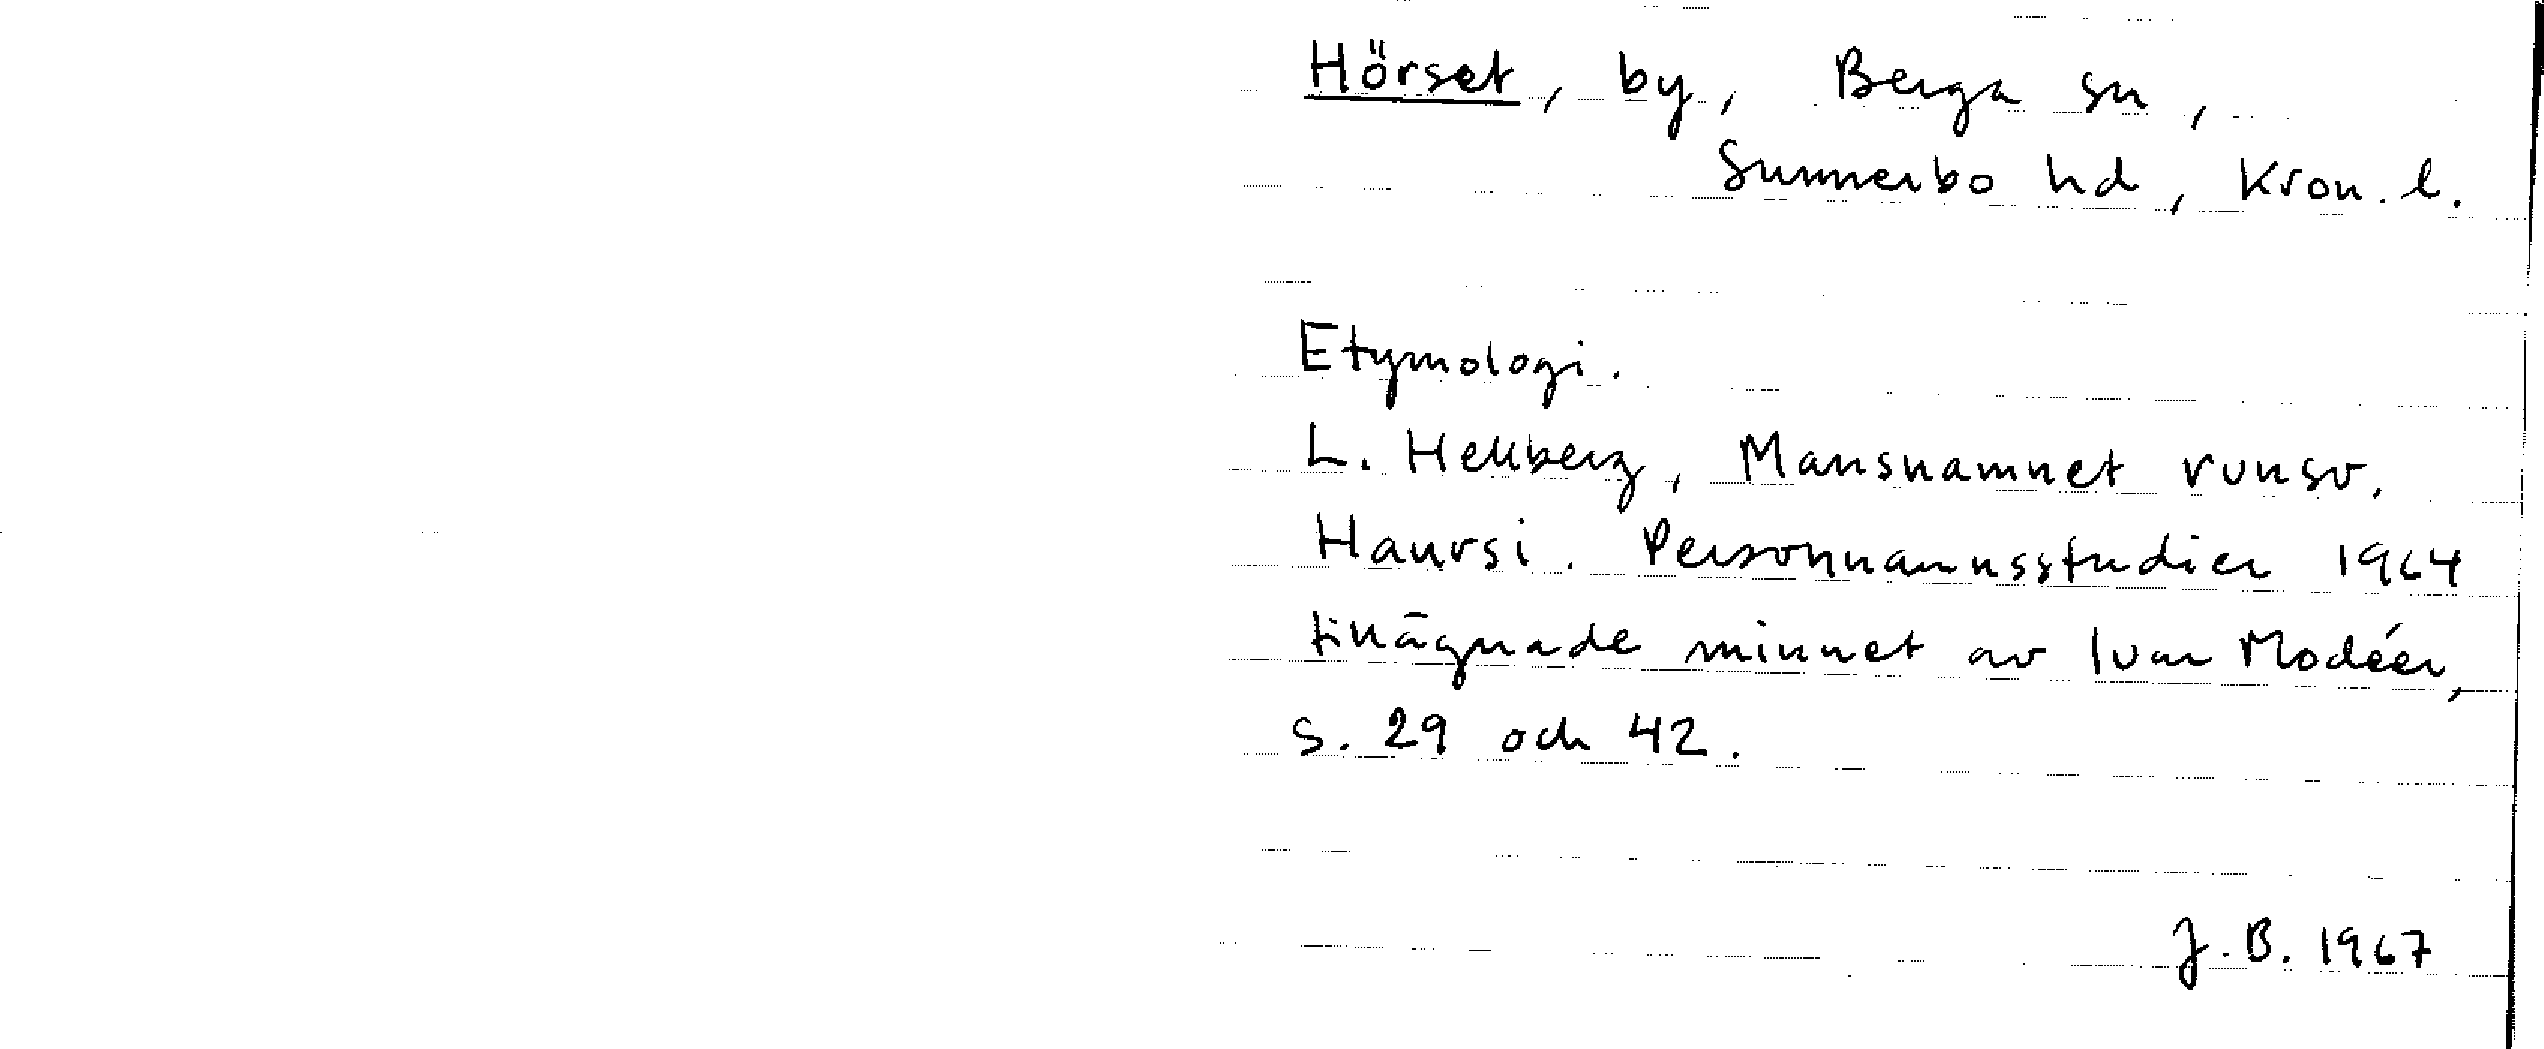 Hörset, by, Berga sn,
Sunnerbo hd, Kron. l.
Etymologi.
L. Hellberg, Mansnamnet runsv.
Haursi. Personnamnsstudier 1964
tillägnade minnet av Ivar Modéer,
s. 29 och 42.
J.B. 1967